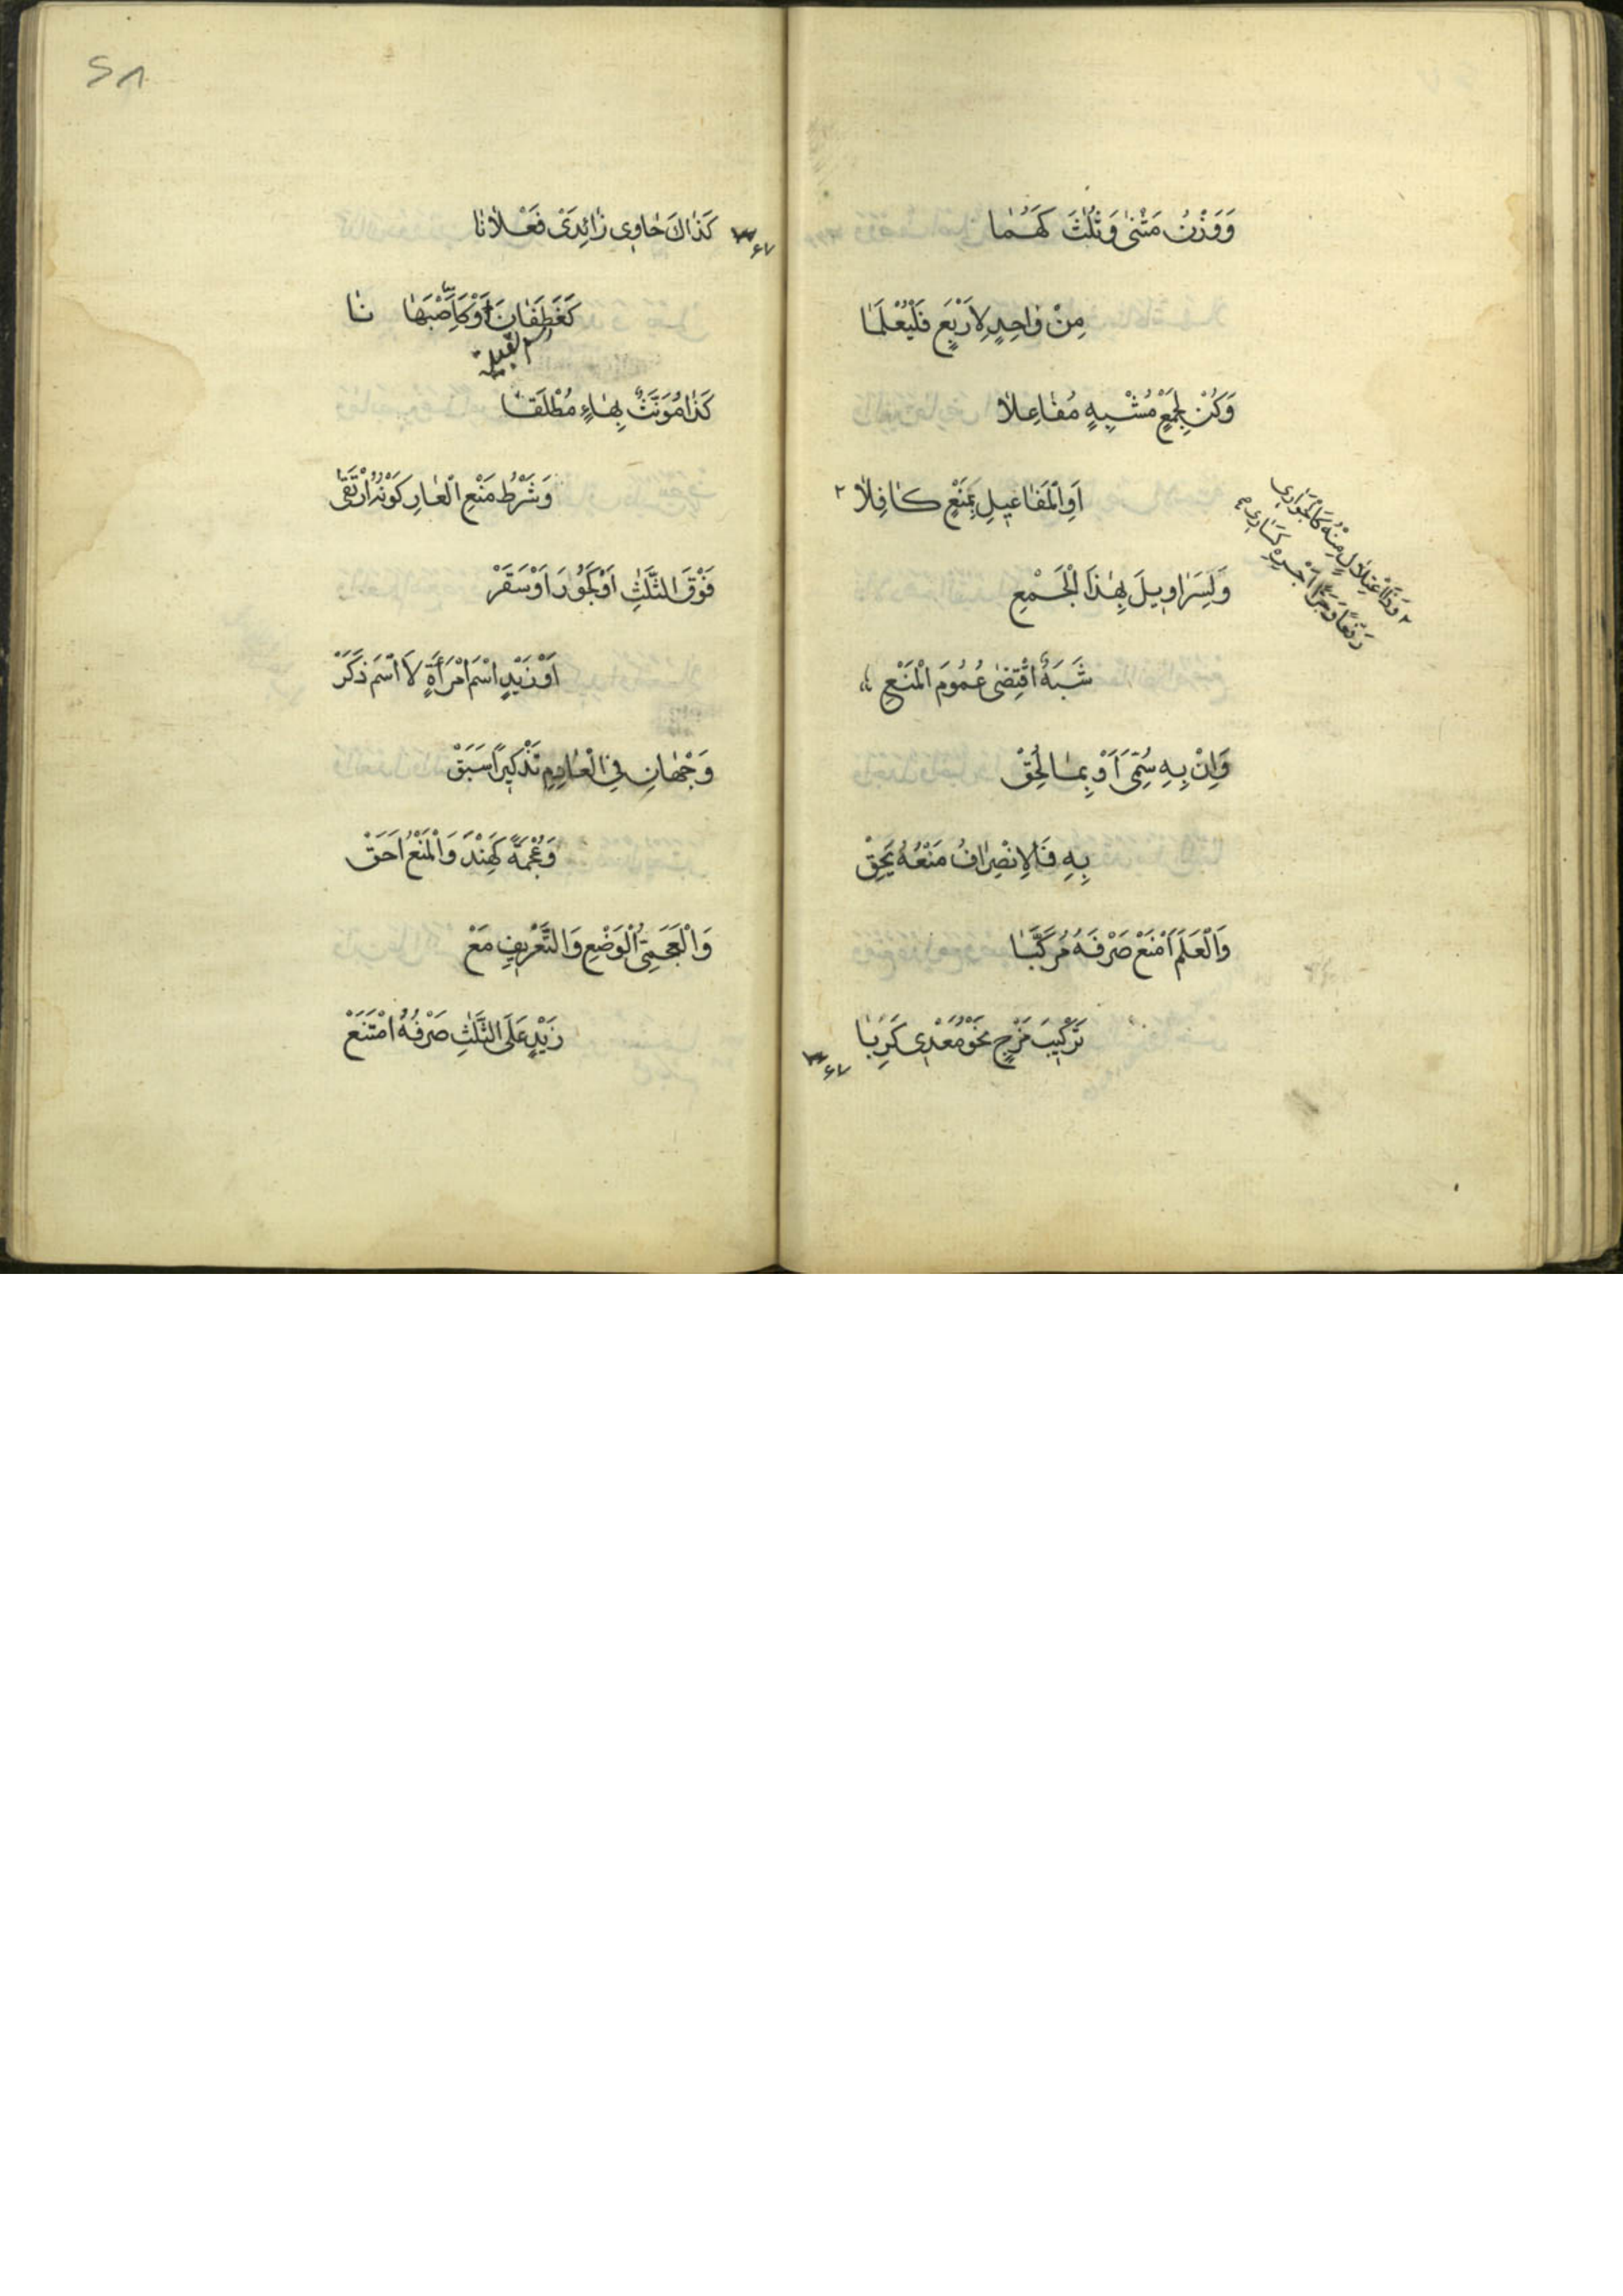 وَوَزْنُ مَثْنٰى وَثُلٰثَ كَهُمَا
مِنْ وٰاحِدٍ لِاَرْبَعٍ فَلْيُعْلَمٰا
وَكُنْ لِجَمْعٍ مُشْبِهٍ مُفٰاعِلاٰ
اَوِ الْمَفٰاعِيلِ بِمَنْعٍ كٰافِلاٰ ٢
٢ وَذَا اعْتِلاٰلٍ مِنْهُ كَالْجَوٰارِى
رَفْعًا وَجَرًّا اَجْرِهِ كَسٰارِى
وَلِسَرٰاوِيلَ بِهٰذَا الْجَمْعِ
شَبَهٌ اقْتَضٰى عُمُومَ الْمَنْعِ
وَاِنْ بِهِ سُمِّىَ اَوْ بِمٰا لُحِقْ
بِهِ فَالْاِنْصِرٰافُ مَنْعُهُ يَحِقْ
وَالْعَلَمَ امْنَعْ صَرْفَهُ مُرَكَّبٰا
تَرْكِيبَ مَزْجٍ نَحْوُ مَعْدِى كَرِبٰا
٦٧
٥٨
٦٧
كَذٰاكَ حٰاوِى زٰائِدَىْ فَعْلاٰنٰا
كَغَطَفٰانَ اَوْ كَاَصْبَهٰا نٰا
اسم القبيلة
كَذٰا مُؤَنَّثٌ بِهٰاءٍ مُطْلَقٰا
وَشَرْطُ مَنْعِ الْعٰارِ كَوْنُهُ ارْتَقٰى
فَوْقَ الثَّلٰثِ اَوْ كَجُورَ اَوْ سَقَرْ
اَوْ زَيْدٍ اسْمَ امْرَأَةٍ لاَ اسْمَ ذَكَرْ
وَجْهٰانِ فِى الْعٰادِمِ تَذْكِيرًا سَبَقْ
وَعُجْمَةً كَهِنْدَ وَالْمَنْعُ اَحَقْ
وَالْعَجَمِىُّ الْوَضْعِ وَالتَّعْرِيفِ مَعْ
زَيْدٍ عَلَى الثَّلٰثِ صَرْفُهُ امْتَنَعْ